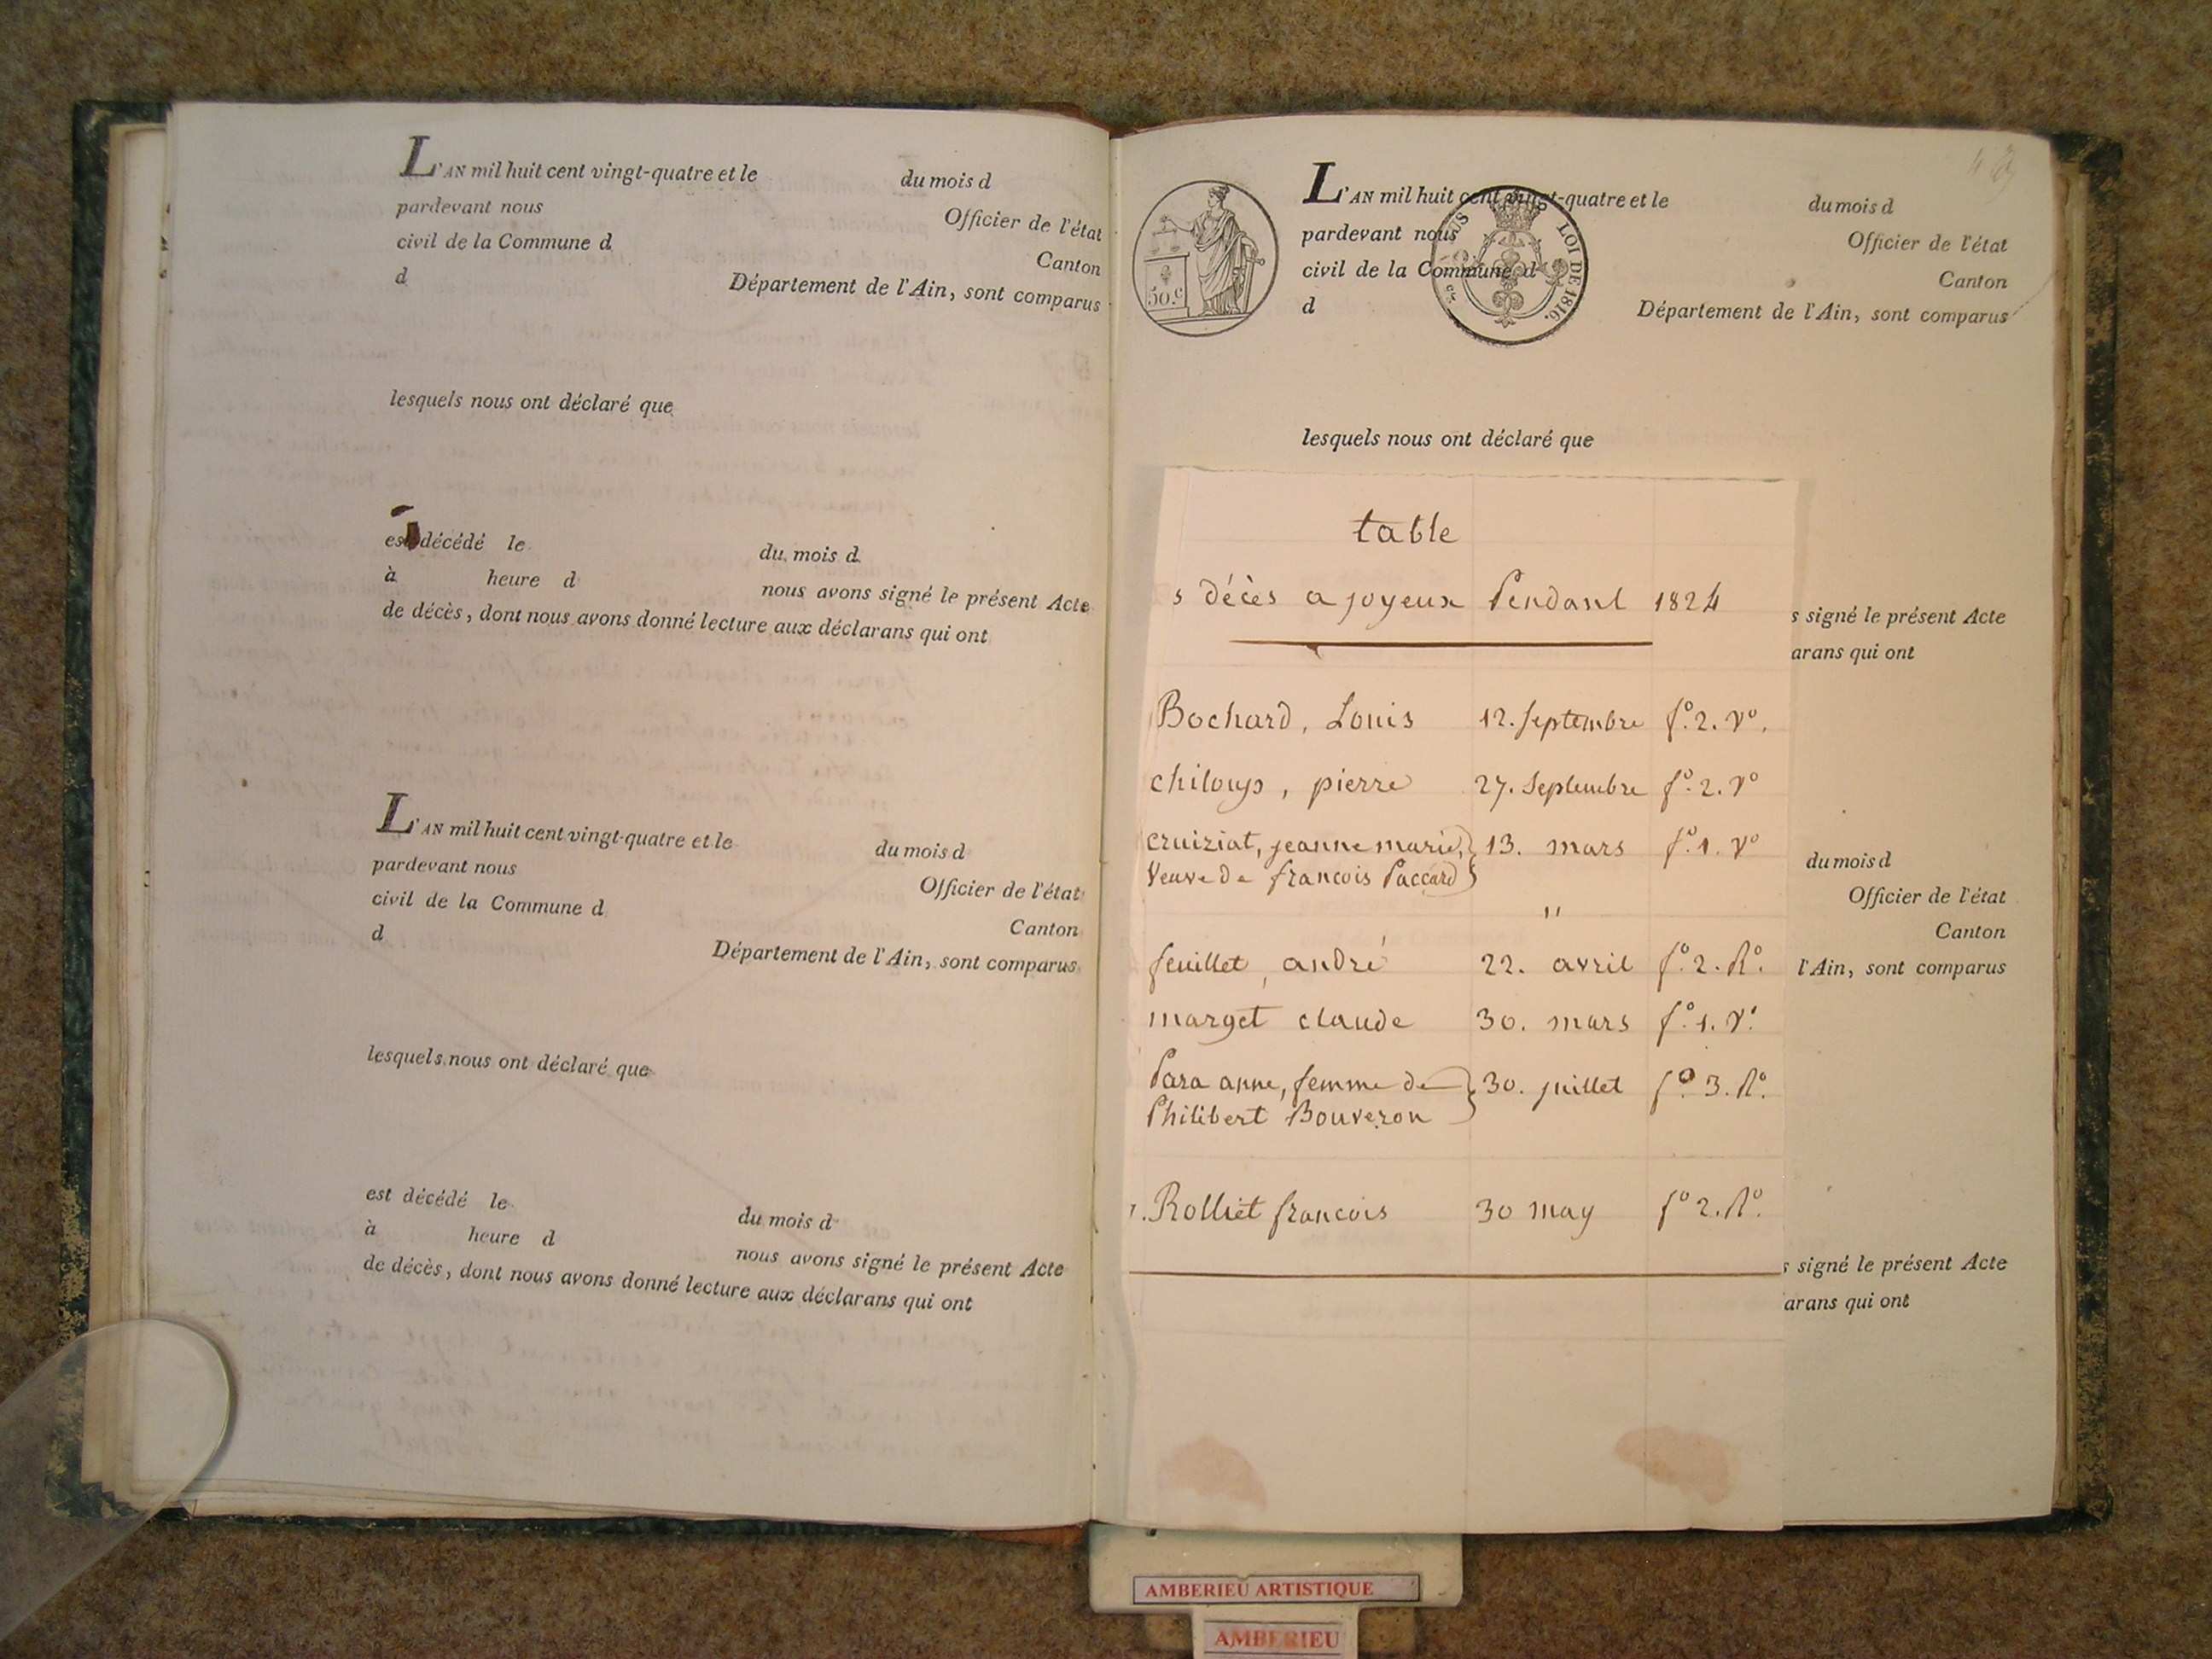 L'AN mil huit cent vingt-quatre et le du mois d
pardevant nous Officier de l'état
civil de la Commune d Canton
d Département de l'Ain, sont comparus
lesquels nous ont déclaré que
est décédé le du mois d
à heure d nous avons signé le présent Acte
de décès, dont nous avons donné lecture aux déclarans qui ont
L'AN mil huit cent vingt-quatre et le du mois d
pardevant nous Officier de l'état
civil de la Commune d Canton
d Département de l'Ain, sont comparus
lesquels nous ont déclaré que
est décédé le du mois d
à heure d nous avons signé le présent Acte
de décès, dont nous avons donné lecture aux déclarans qui ont
50.c
LOI DE 1816.
L'AN mil huit cent vingt-quatre et le du mois d
pardevant nous Officier de l'état
civil de la Commune d Canton
d Département de l'Ain, sont comparus
lesquels nous ont déclaré que
table
s décès a joyeux Pendant 1824
s signé le présent Acte
arans qui ont
Bochard, Louis 12. septembre f.º 2. vº.
chiloup, pierre 27. Septembre f.º 2. vº
cruiziat, jeanne marie, } 13. mars f.º 1. vº
Veuve de francois Paccard }
"
feuillet, andré 22. avril f.º 2. Rº.
marget claude 30. mars f.º 1. vº
Para anne, femme de } 30. juillet f.º 3. Rº.
Philibert Bouveron }
Rolliet francois 30 may fº 2. Rº.
du mois d
Officier de l'état
Canton
l'Ain, sont comparus
s signé le présent Acte
arans qui ont
AMBERIEU ARTISTIQUE
AMBERIEU